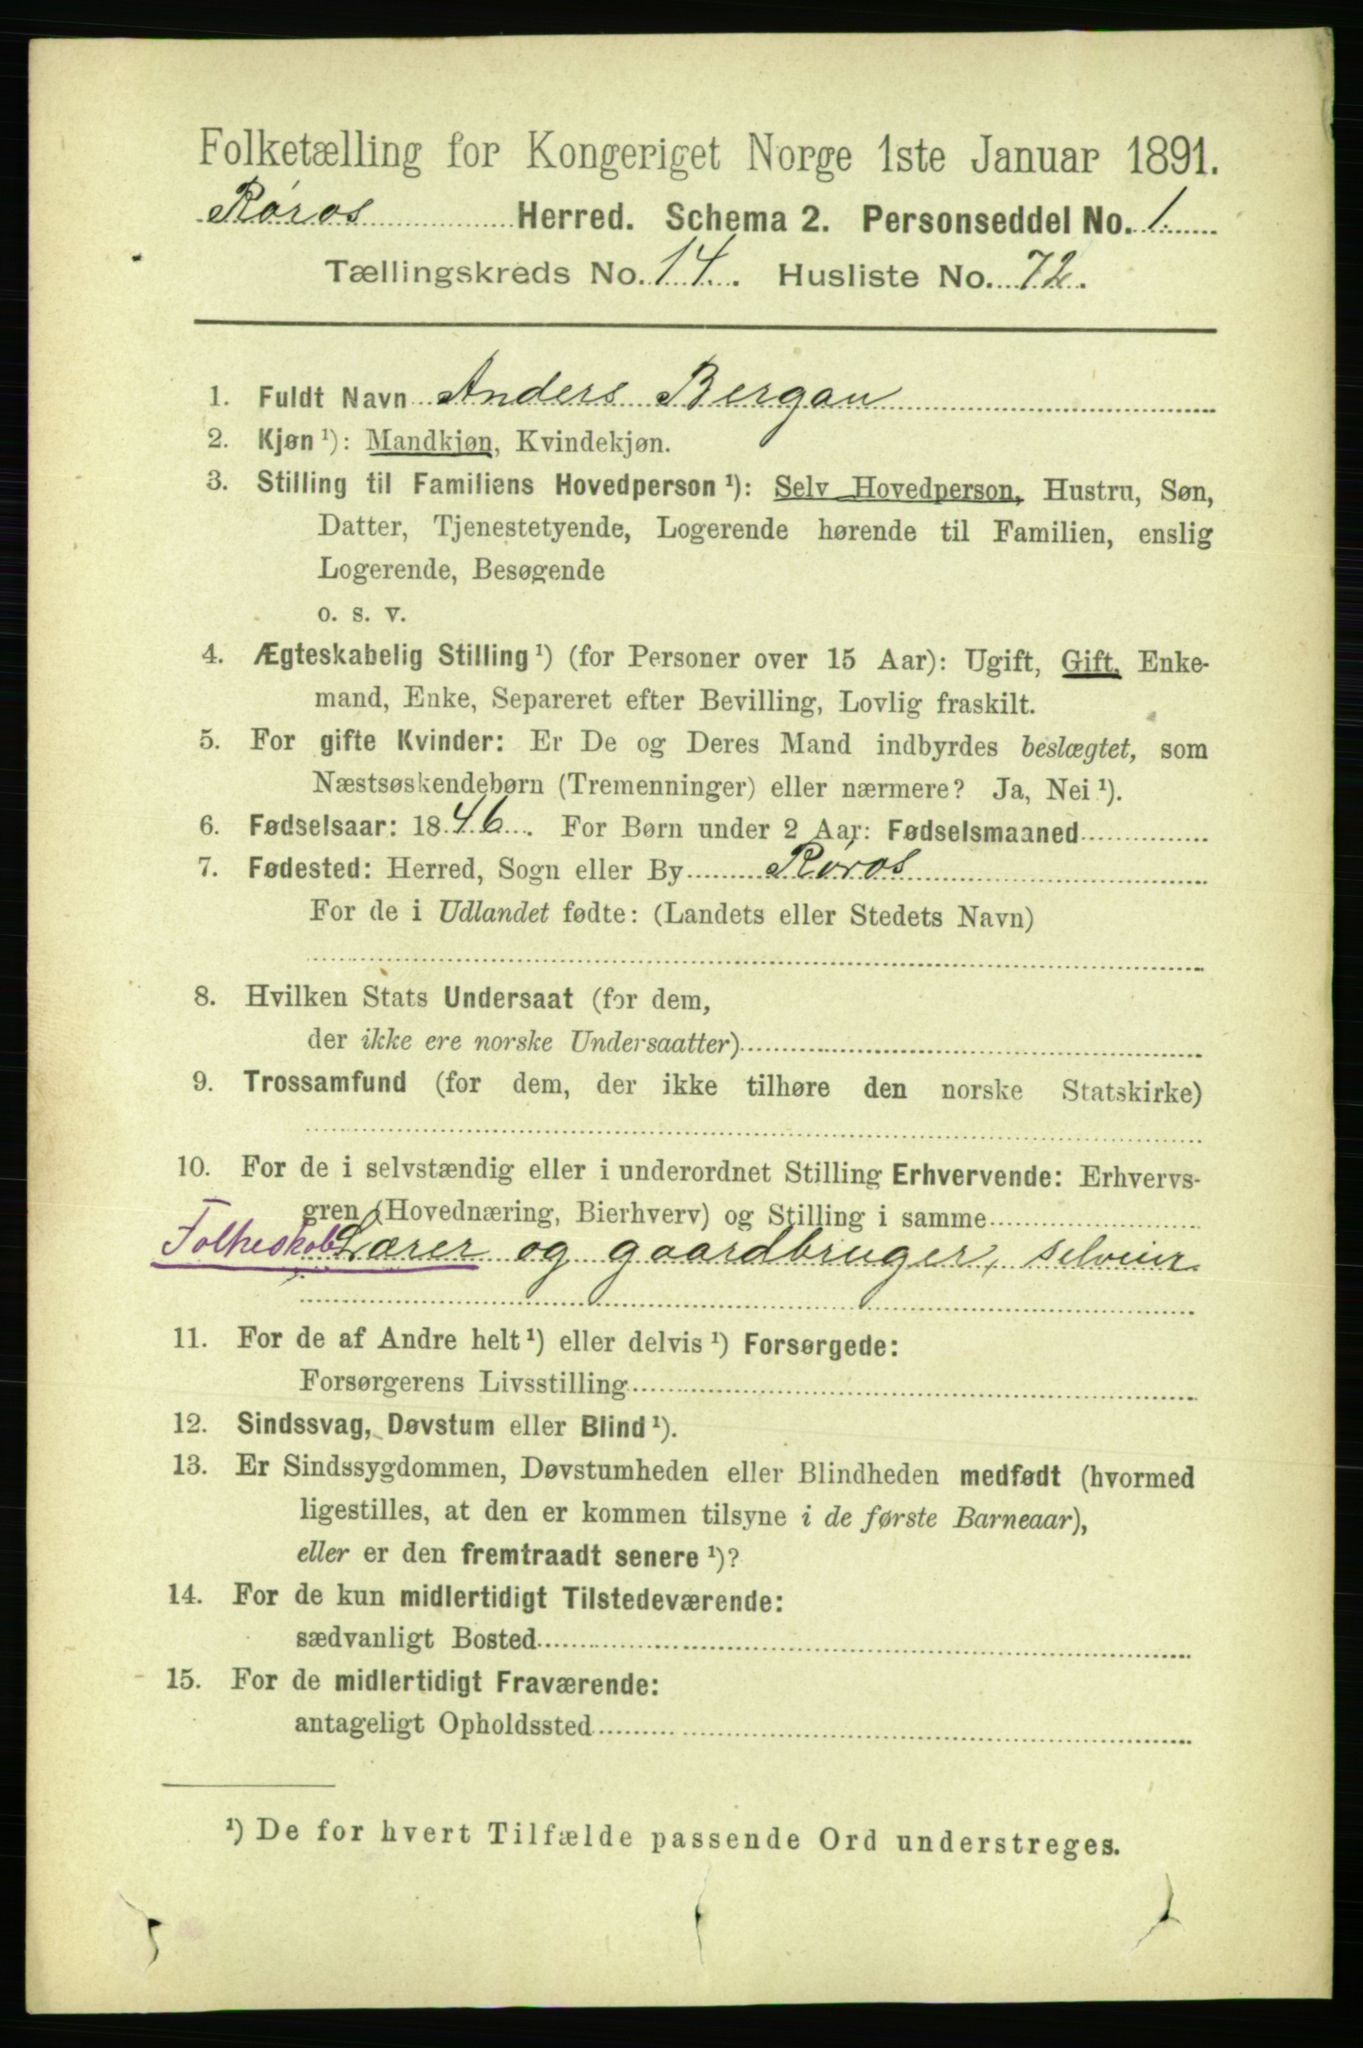 Folketælling for Kongeriget Norge 1ste Januar 1891.
Røros Herred. Schema 2. Personseddel No. 1
Tællingskreds No. 14. Husliste No. 72.
1. Fuldt Navn Anders Bergan
2. Kjøn ¹): Mandkjøn, Kvindekjøn.
3. Stilling til Familiens Hovedperson ¹): Selv Hovedperson, Hustru, Søn,
Datter, Tjenestetyende, Logerende hørende til Familien, enslig
Logerende, Besøgende
o. s. v.
4. Ægteskabelig Stilling ¹) (for Personer over 15 Aar): Ugift, Gift, Enke-
mand, Enke, Separeret efter Bevilling, Lovlig fraskilt.
5. For gifte Kvinder: Er De og Deres Mand indbyrdes beslægtet, som
Næstsøskendebørn (Tremenninger) eller nærmere? Ja, Nei ¹).
6. Fødselsaar: 1846. For Børn under 2 Aar: Fødselsmaaned
7. Fødested: Herred, Sogn eller By Røros
For de i Udlandet fødte: (Landets eller Stedets Navn)
8. Hvilken Stats Undersaat (for dem,
der ikke ere norske Undersaatter)
9. Trossamfund (for dem, der ikke tilhøre den norske Statskirke)
10. For de i selvstændig eller i underordnet Stilling Erhvervende: Erhvervs-
gren (Hovednæring, Bierhverv) og Stilling i samme
Folkeskole Lærer og gaardbruger, selveier
11. For de af Andre helt ¹) eller delvis ¹) Forsørgede:
Forsørgerens Livsstilling
12. Sindssvag, Døvstum eller Blind ¹).
13. Er Sindssygdommen, Døvstumheden eller Blindheden medfødt (hvormed
ligestilles, at den er kommen tilsyne i de første Barneaar),
eller er den fremtraadt senere ¹)?
14. For de kun midlertidigt Tilstedeværende:
sædvanligt Bosted
15. For de midlertidigt Fraværende:
antageligt Opholdssted
¹) De for hvert Tilfælde passende Ord understreges.